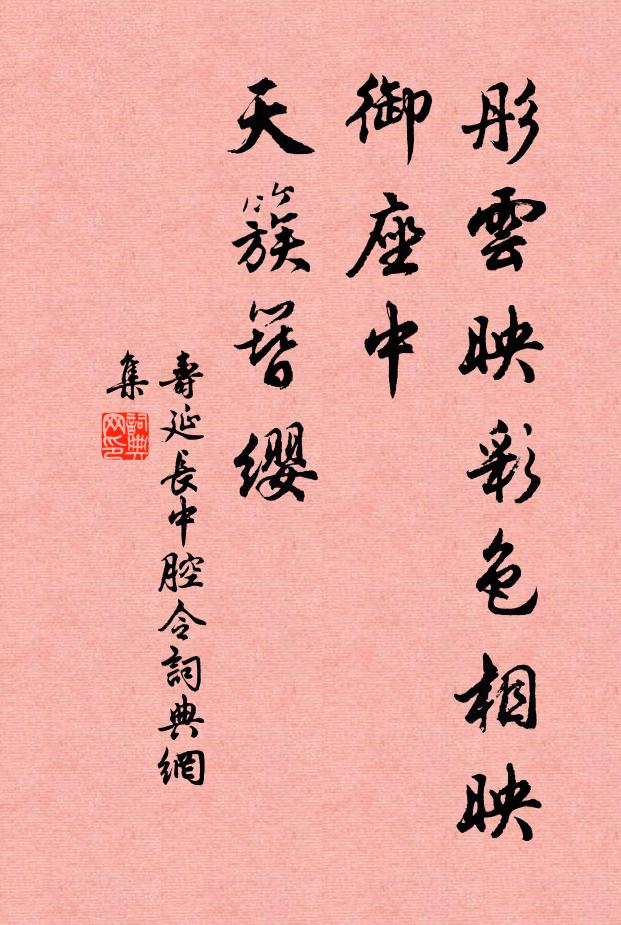 彤雲映彩色相映
御座中
天簇簪纓
壽延長中腔令詞典網
集
詞典
网印